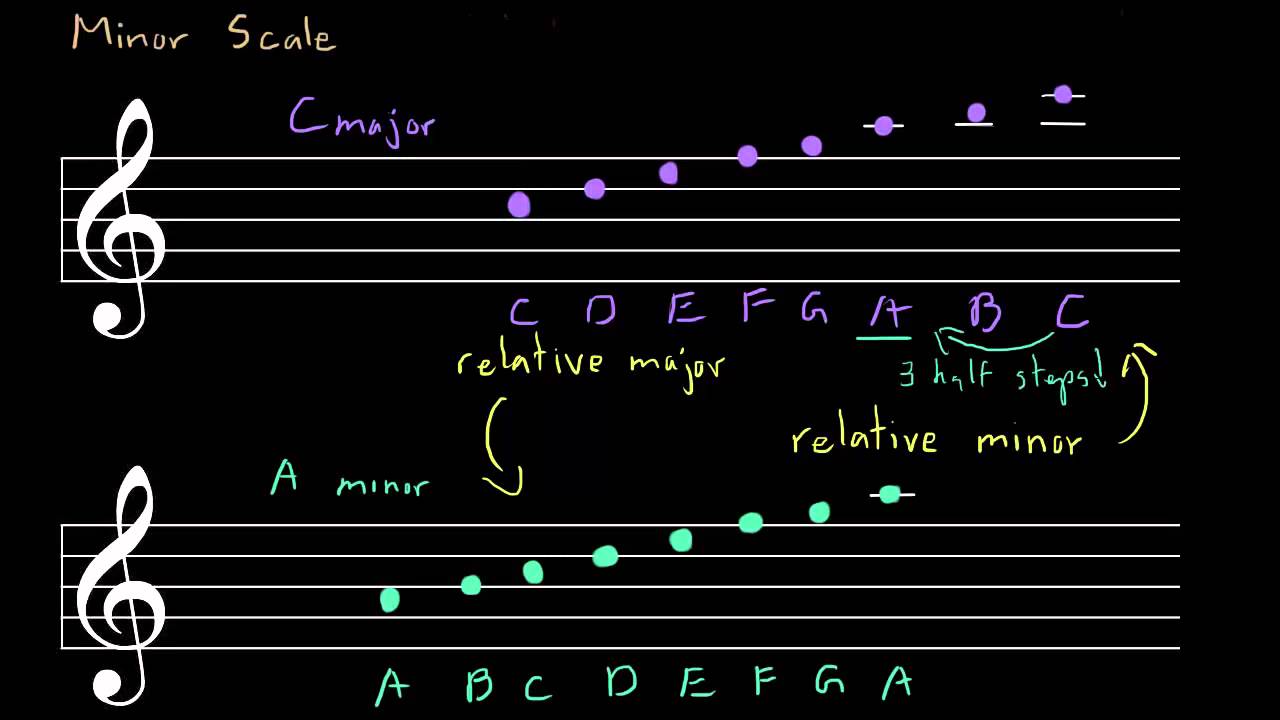 Minor Scale
C major
C D E F G A B C
relative major
3 half steps!
relative minor
A minor
A B C D E F G A